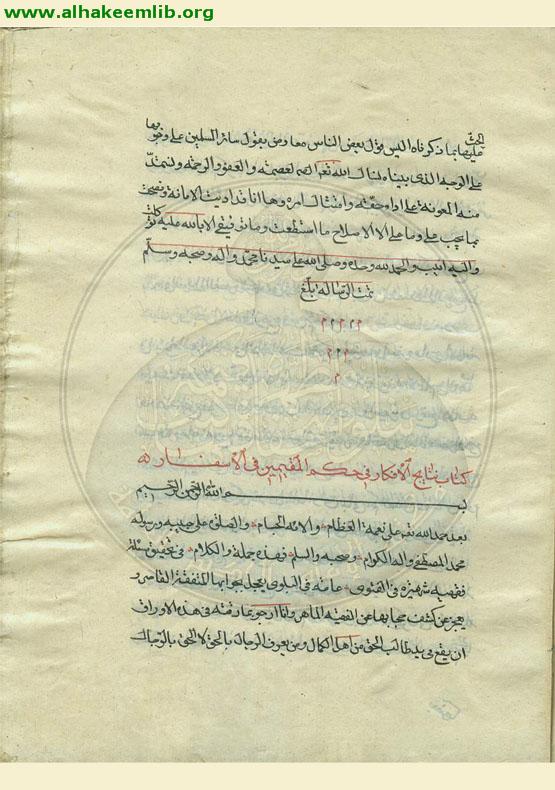 www.alhakeemlib.org
الحث
عليها بما ذكرناه اليس قول بعض الناس معا ومن يقول سائر المسلمين على وقوفها
على الوجه الذي بيناه لنا نسال الله تعالى العصمة والعفو والرحمة ونستمد
منه المعونة على اداء حقه وامتثال امره وها انا قد اديت الامانة ونصحت
بما يجب علي وما علي الا الاصلاح ما استطعت وما توفيقي الا بالله عليه توكلت
واليه انيب والحمد لله وحده وصلى الله على سيدنا محمد واله وصحبه وسلم
تمت الرسالة بلغ
م م م م م
م م م
م
كتاب نتايج الافكار في حكم المقيمين في الاسفار
بسم الله الرحمن الرحيم
بعد حمد الله تعالى على نعمه العظام والائه الجسام والصلوة على حبيبه ورسوله
محمد المصطفى واله الكرام وصحبه والسلام فهذه جملة والكلام في تحقيق مسئلة
فقهية شهيرة في الفتوى عامة في البلوى يعجل بجوابها المتفقة القاسر و
يعجز عن كشف حجابها عن الفقيه الماهر وانا ارجو بما دفته في هذه الاوراق
ان يقع في يد طالب الحق من اهل الكمال ومن يعرف الرجال بالحق لا الحق بالرجال